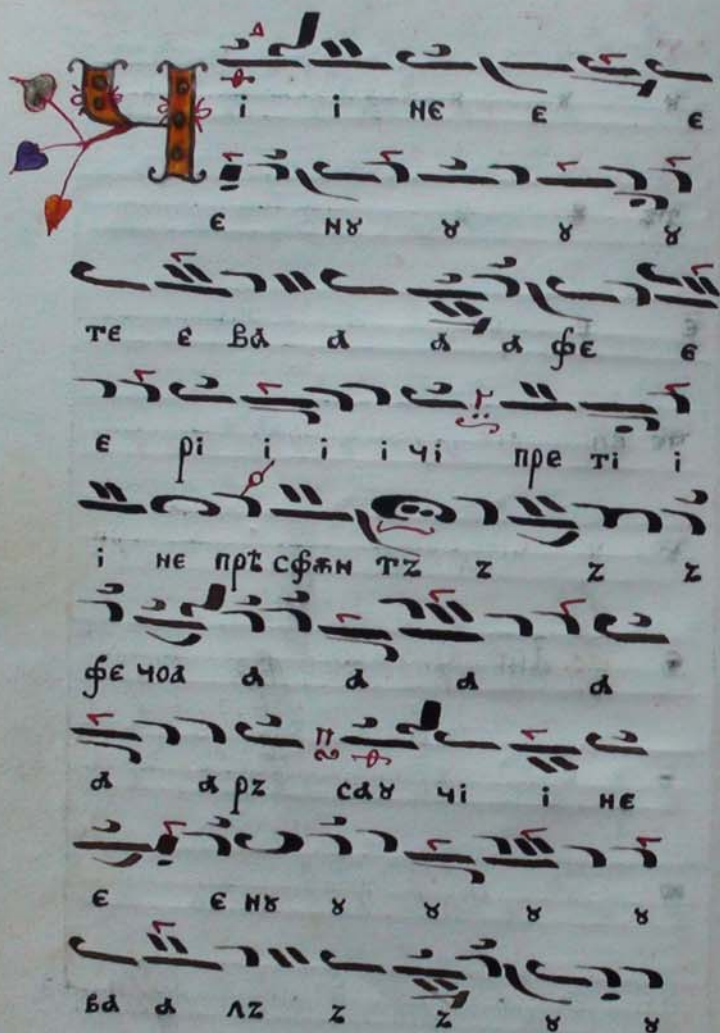 Ч і і нє є є
є нꙋ ꙋ ꙋ ꙋ
тє є ва а а а фє є
є рі і і і чі пре ті і
і нє прѣ сфѫн тz z z z
фє чоа а а а а
а а рz саꙋ чі і нє
є є нꙋ ꙋ ꙋ ꙋ ꙋ
ва а лz z z ꙋ ꙋ